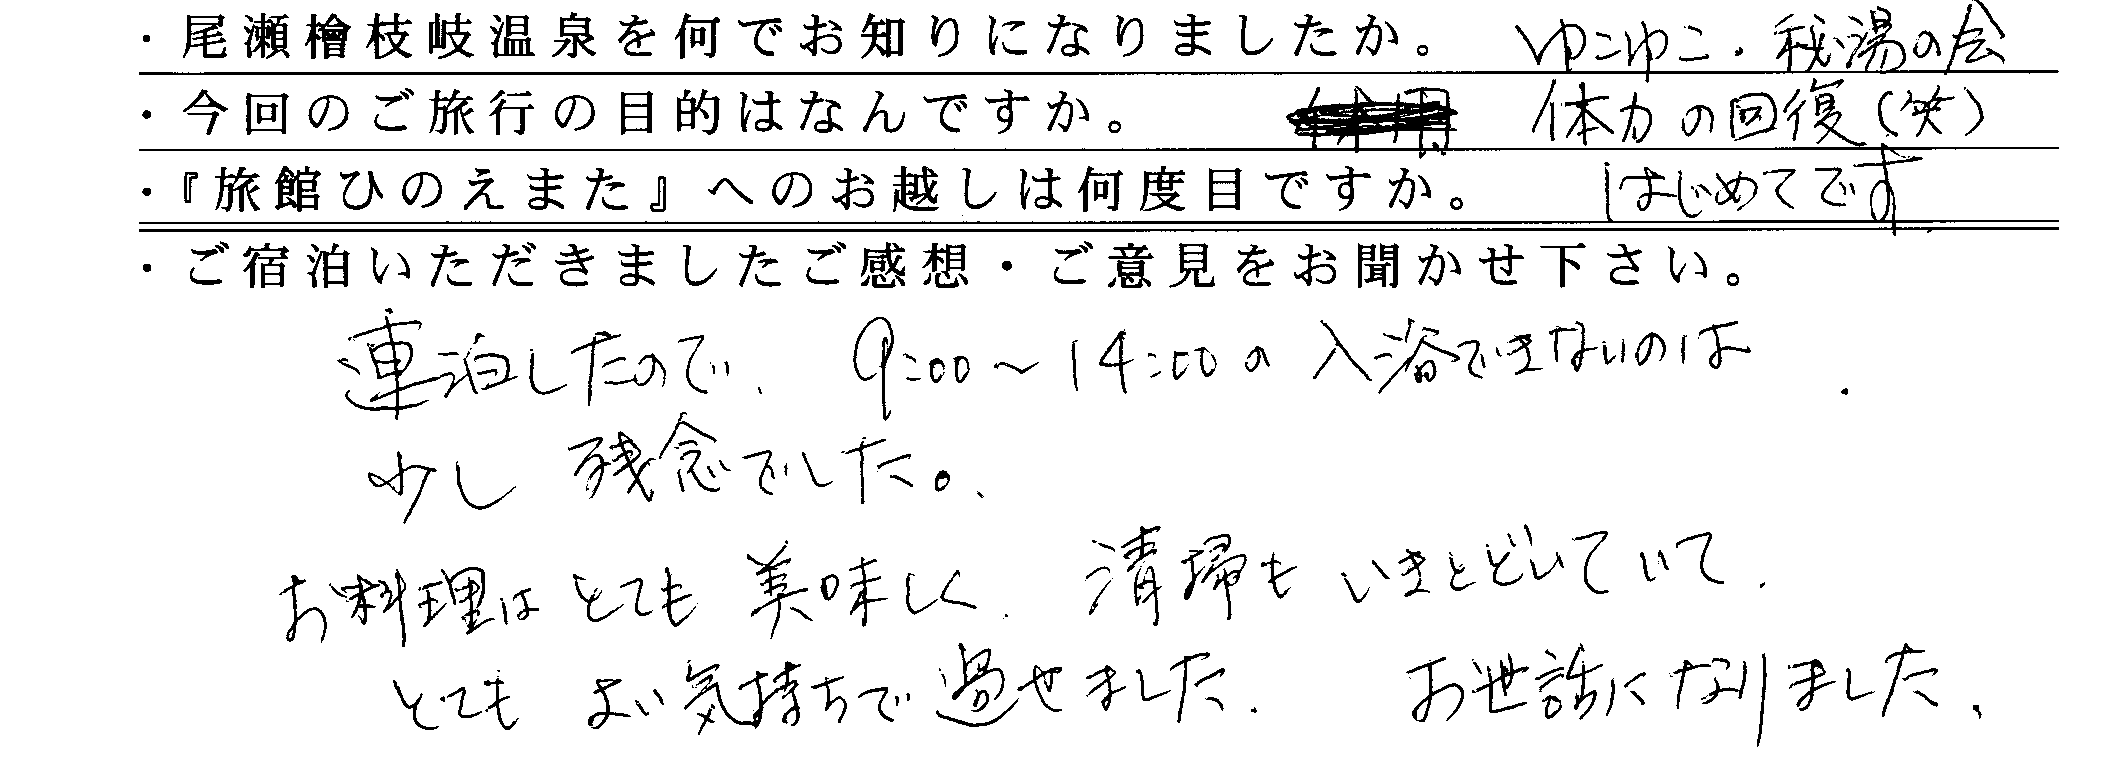 ・尾瀬檜枝岐温泉を何でお知りになりましたか。 ゆこゆこ・秘湯の会
・今回のご旅行の目的はなんですか。 体力の回復(笑)
・『旅館ひのえまた』へのお越しは何度目ですか。 はじめてです
・ご宿泊いただきましたご感想・ご意見をお聞かせ下さい。
連泊したので、9:00〜14:00の入浴できないのは
少し残念でした。
お料理はとても美味しく、清掃もいきとどいていて、
とてもよい気持ちで過せました。 お世話になりました。